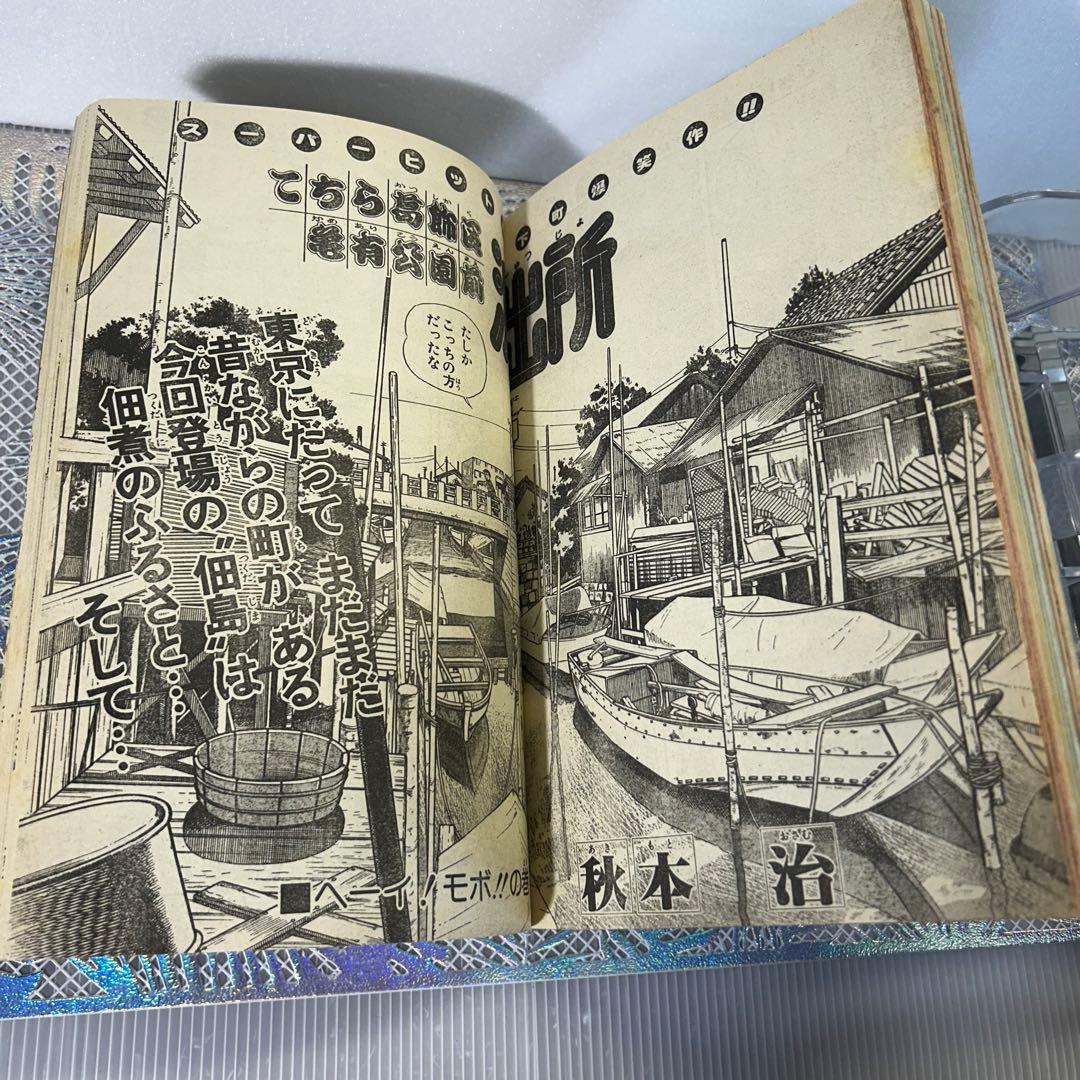 スーパーヒット下町爆笑作!!
こちら葛飾区
亀有公園前
派出所
たしか
こっちの方
だったな
東京にだって まだまだ
昔ながらの町がある
今回登場の〝佃島〟は
佃煮のふるさと…
そして…
■ヘーイ!モボ!!の巻
秋本 治